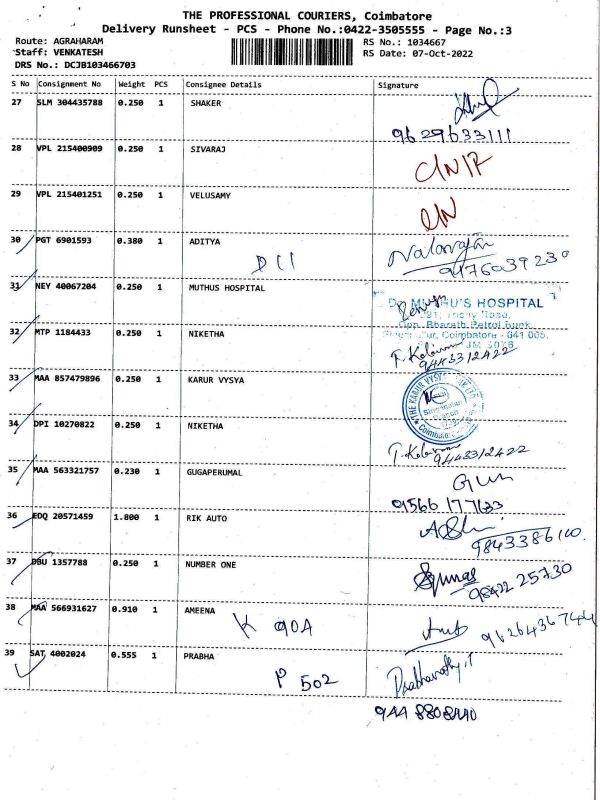 THE PROFESSIONAL COURIERS, Coimbatore
Delivery Runsheet - PCS - Phone No.:0422-3505555 - Page No.:3
Route: AGRAHARAM RS No.: 1034667
Staff: VENKATESH RS Date: 07-Oct-2022
DRS No.: DCJB103466703
S No Consignment No Weight PCS Consignee Details Signature
27 SLM 304435788 0.250 1 SHAKER
9629633111
28 VPL 215400909 0.250 1 SIVARAJ
29 VPL 215401251 0.250 1 VELUSAMY
30 PGT 6901593 0.380 1 ADITYA
9176039230
31 NEY 40067204 0.250 1 MUTHUS HOSPITAL
HOSPITAL
Opp. Bharath Petrol Bunk
Coimbatore - 641 005.
32 MTP 1184433 0.250 1 NIKETHA
9443312422
33 MAA 857479896 0.250 1 KARUR VYSYA
THE KARUR VYSYA
34 DPI 10270822 0.250 1 NIKETHA
9443312422
35 MAA 563321757 0.230 1 GUGAPERUMAL
36 EDQ 20571459 1.800 1 RIK AUTO
37 DBU 1357788 0.250 1 NUMBER ONE
98422 25730
38 MAA 566931627 0.910 1 AMEENA K 90A
9626436744
39 SAT 4002024 0.555 1 PRABHA P 502